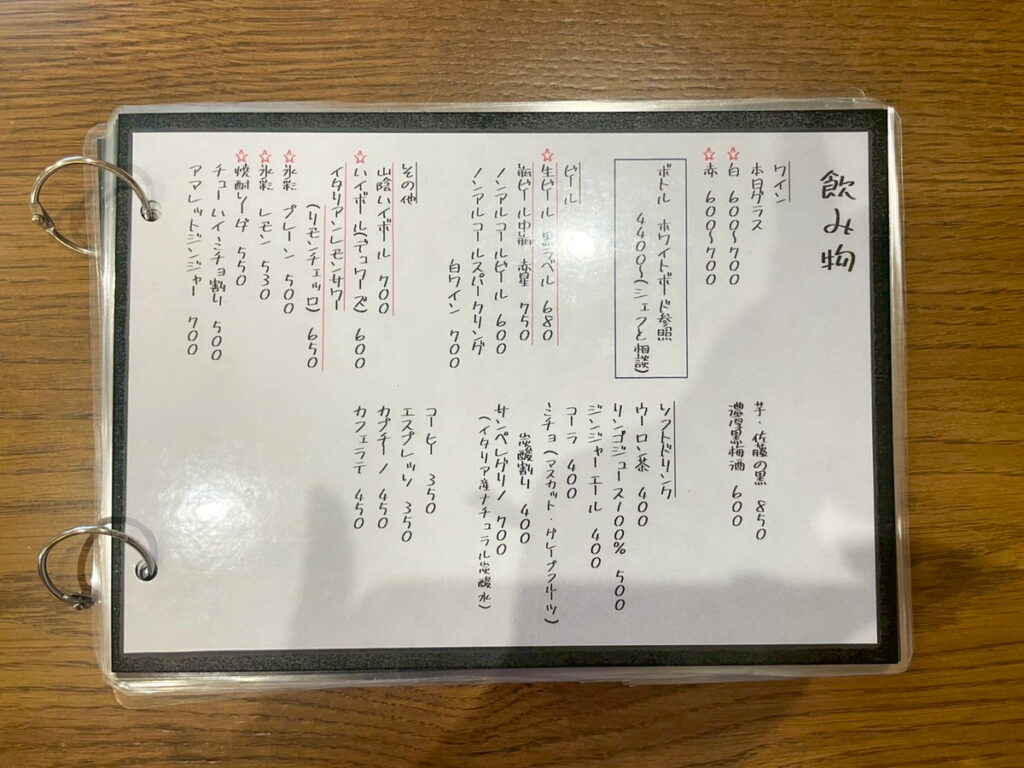 飲み物
ワイン
本日グラス
☆白 600〜700
☆赤 600〜700
ボトル ホワイトボード参照
4400〜(シェフと相談)
ビール
☆生ビール 黒ラベル 680
瓶ビール中瓶 赤星 750
ノンアルコールビール 600
ノンアルコールスパークリング
白ワイン 700
その他
山陰ハイボール 700
☆ハイボール(デュワーズ) 600
イタリアンレモンサワー
(リモンチェッロ) 650
☆氷彩 プレーン 500
☆氷彩 レモン 530
☆焼酎ソーダ 550
チューハイミチョ割り 500
アマレットジンジャー 700
芋・佐藤の黒 850
濃厚黒梅酒 600
ソフトドリンク
ウーロン茶 400
リンゴジュース100% 500
ジンジャーエール 400
コーラ 400
ミチョ(マスカット・グレープフルーツ)
炭酸割り 400
サンペレグリノ 700
(イタリア産ナチュラル炭酸水)
コーヒー 350
エスプレッソ 350
カプチーノ 450
カフェラテ 450